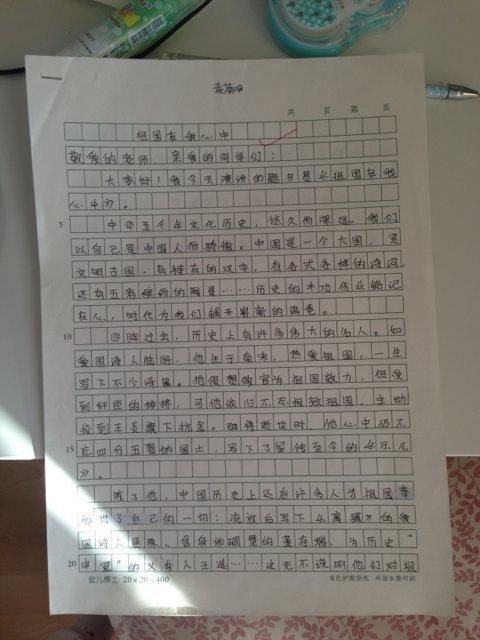 共 页 第 页
祖国在我心中
敬爱的老师，亲爱的同学们：
大家好！我今天演讲的题目是《祖国在我
心中》。
5 中华五千年文化历史，悠久而深远。我们
以自己是中国人而骄傲。中国是一个大国，是
文明古国，有特有的汉字，有各式各样的诗词，
还有五彩缤纷的陶瓷……历史的丰功伟业铭记
在心，时代为我们铺开崭新的画卷。
10 回眸过去，历史上有许多伟大的名人。如
爱国诗人陆游，他生于南宋，热爱祖国，一生
写下不少诗篇。他很想做官为祖国效力，但受
到奸臣的排挤，可他依旧不忘报效祖国，主动
投到王炎旗下抗金。即将逝世时，他心中仍不
15 忘四分五裂的国土，写下了留传至今的《示儿
》。
除了他，中国历史上还有许多人为祖国奉
献出了自己的一切：流放后写下《离骚》的爱
国诗人屈原、舍身炸碉堡的董存瑞、为历史“
20 申冤”的义务人王选……这无不说明他们对祖
金儿博士 20×20=400 本色护眼原纸 环保水墨印刷